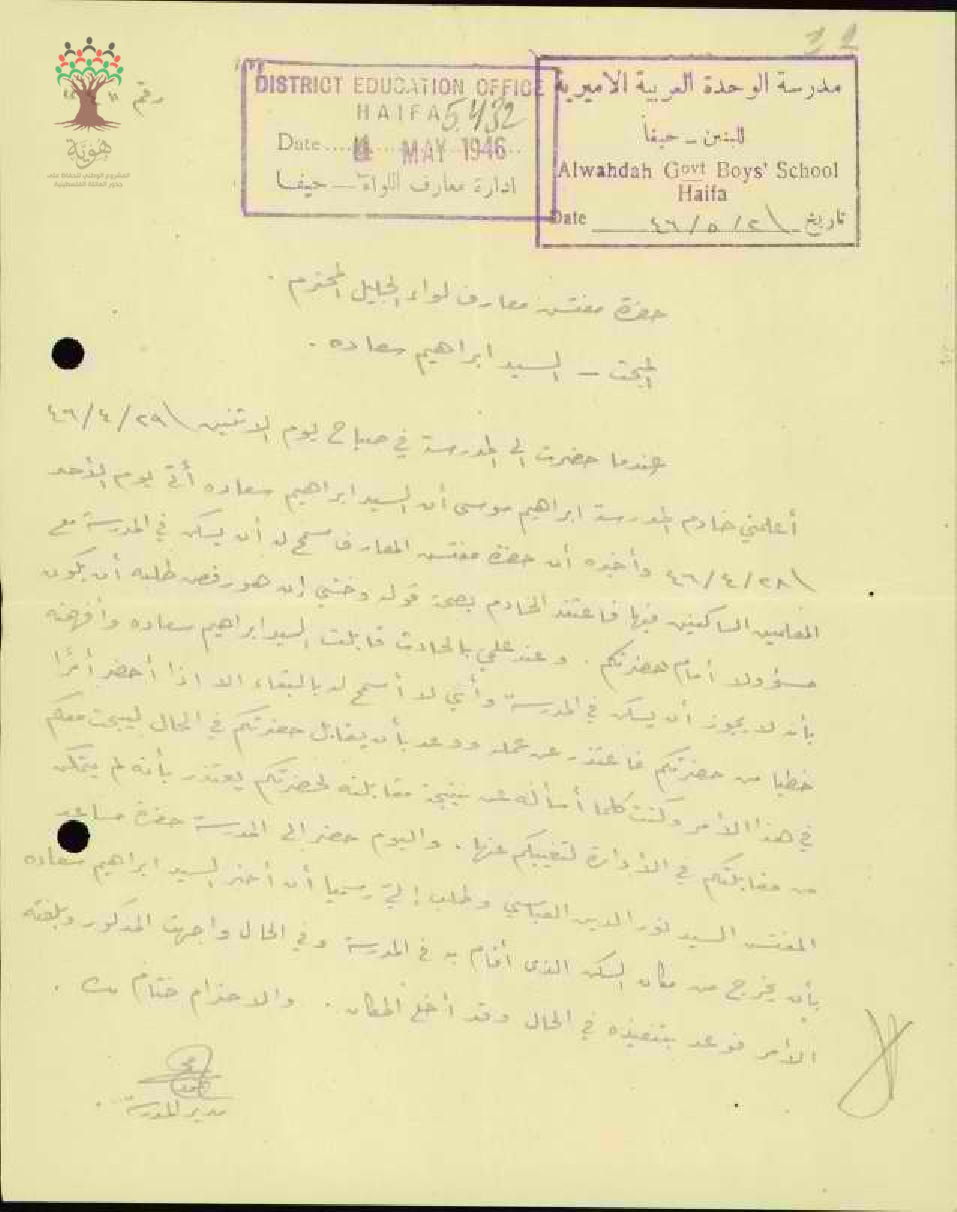 رقم
DISTRICT EDUCATION OFFICE
HAIFA 5432
Date.... 4 MAY 1946
ادارة معارف اللواء – حيفا
مدرسة الوحدة العربية الاميرية
للبنين – حيفا
Alwahdah Govt Boys' School
Haifa
Date ٢ / ٥ / ٤٦ تاريخ
هوية
المشروع الوطني للحفاظ على
جذور العائلة الفلسطينية
حضرة مفتش معارف لواء الجليل المحترم .
المبحث – السيد ابراهيم سعاده .
عندما حضرت الى المدرسة في صباح يوم الاثنين ٢٩/٤/٤٦
أعلمني خادم المدرسة ابراهيم موسى أن السيد ابراهيم سعاده أتى يوم الأحد
٢٨/٤/٤٦ وأخبره أن حضرة مفتش المعارف سمح له أن يسكن في المدرسة مع
المعلمين الساكنين فيها فاعتقد الخادم بصحة قوله وخشي إن هو رفض طلبه أن يكون
مسؤولا أمام حضرتكم . وعند علمي بالحادث قابلت السيد ابراهيم سعاده وأفهمته
بأنه لا يجوز أن يسكن في المدرسة وأنني لا أسمح له بالبقاء الا اذا أحضر أمرًا
خطيا من حضرتكم فاعتذر عن عمله ووعد بأن يقابل حضرتكم في الحال ليبحث معكم
في هذا الأمر وكنت كلما أسأله عن نتيجة مقابلته لحضرتكم يعتذر بأنه لم يتمكن
من مقابلتكم في الأدارة لتغيبكم عنها . واليوم حضر الى المدرسة حضرة مساعد
المفتش السيد نور الدين العباسي وطلب إليّ رسميا أن أخبر السيد ابراهيم سعاده
بأن يخرج من مكان السكن الذي أقام به في المدرسة وفي الحال واجهت المذكور وبلغته
الأمر فوعد بتنفيذه في الحال وقد أخلى المكان . والاحترام ختام .
مدير المدرسة .